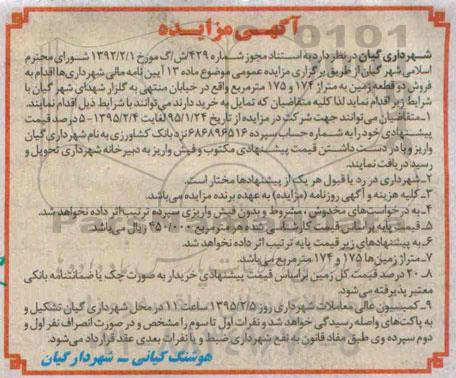 آگهی مزایده
شهرداری گیان در نظر دارد به استناد مجوز شماره ۴۲۹/ش/گ مورخ ۱۳۹۲/۲/۱ شورای محترم
اسلامی شهر گیان از طریق برگزاری مزایده عمومی موضوع ماده ۱۳ آیین نامه مالی شهرداری‌ها اقدام به
فروش دو قطعه زمین به متراژ ۱۷۴ و ۱۷۵ مترمربع واقع در خیابان منتهی به گلزار شهدای شهر گیان با
شرایط زیر اقدام نماید لذا کلیه متقاضیان که تمایل به خرید دارند می‌توانند با شرایط ذیل اقدام نمایند.
۱ـ متقاضیان می‌توانند جهت شرکت در مزایده از تاریخ ۹۵/۱/۲۴ لغایت ۱۳۹۵/۲/۴ ـ ۵ درصد قیمت
پیشنهادی خود را به شماره حساب سپرده ۶۸۶۸۹۶۵۱۶ نزد بانک کشاورزی به نام شهرداری گیان
واریز و با در دست داشتن قیمت پیشنهادی مکتوب و فیش واریز به دبیرخانه شهرداری تحویل و
رسید دریافت نمایند.
۲ـ شهرداری در رد یا قبول هر یک از پیشنهادها مختار است.
۳ـ کلیه هزینه و آگهی روزنامه (مزایده) به عهده برنده مزایده می‌باشد.
۴ـ به درخواست‌های مخدوش، مشروط و بدون فیش واریزی سپرده ترتیب اثر داده نخواهد شد.
۵ـ قیمت پایه براساس قیمت کارشناسی شده هر مترمربع ۴۵۰/۰۰۰ ریال می‌باشد.
۶ـ به پیشنهادهای زیر قیمت پایه ترتیب اثر داده نخواهد شد.
۷ـ متراژ زمین‌ها ۱۷۵ و ۱۷۴ مترمربع می‌باشد.
۸ـ ۲۰ درصد قیمت کل زمین براساس قیمت پیشنهادی خریدار به صورت چک یا ضمانتنامه بانکی
معتبر پذیرفته می‌شود.
۹ـ کمیسیون عالی معاملات شهرداری روز ۱۳۹۵/۲/۵ ساعت ۱۱ در محل شهرداری گیان تشکیل و
به پاکت‌های واصله رسیدگی خواهد شد و نفرات اول تا سوم را مشخص و در صورت انصراف نفر اول و
دوم سپرده وی طبق مفاد قانون به نفع شهرداری ضبط و با نفرات بعدی عقد قرارداد می‌شود.
هوشنگ کیانی ـ شهردار گیان